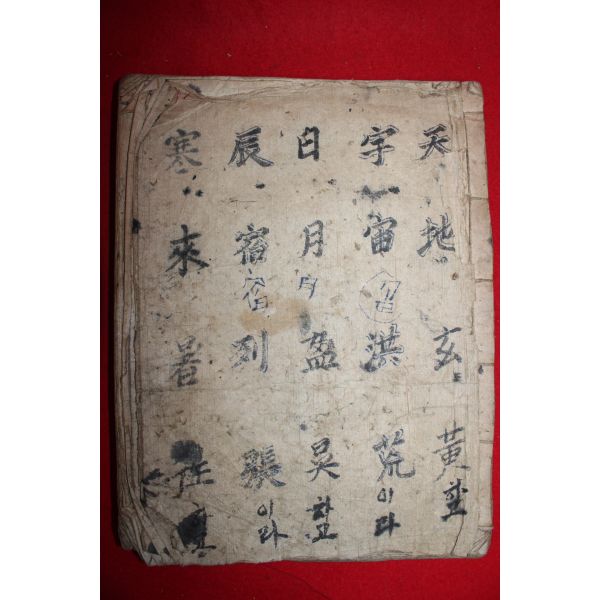 天地玄黃
宇宙洪荒이라
日月月盈昃하고
辰宿宿列張이라
寒來暑